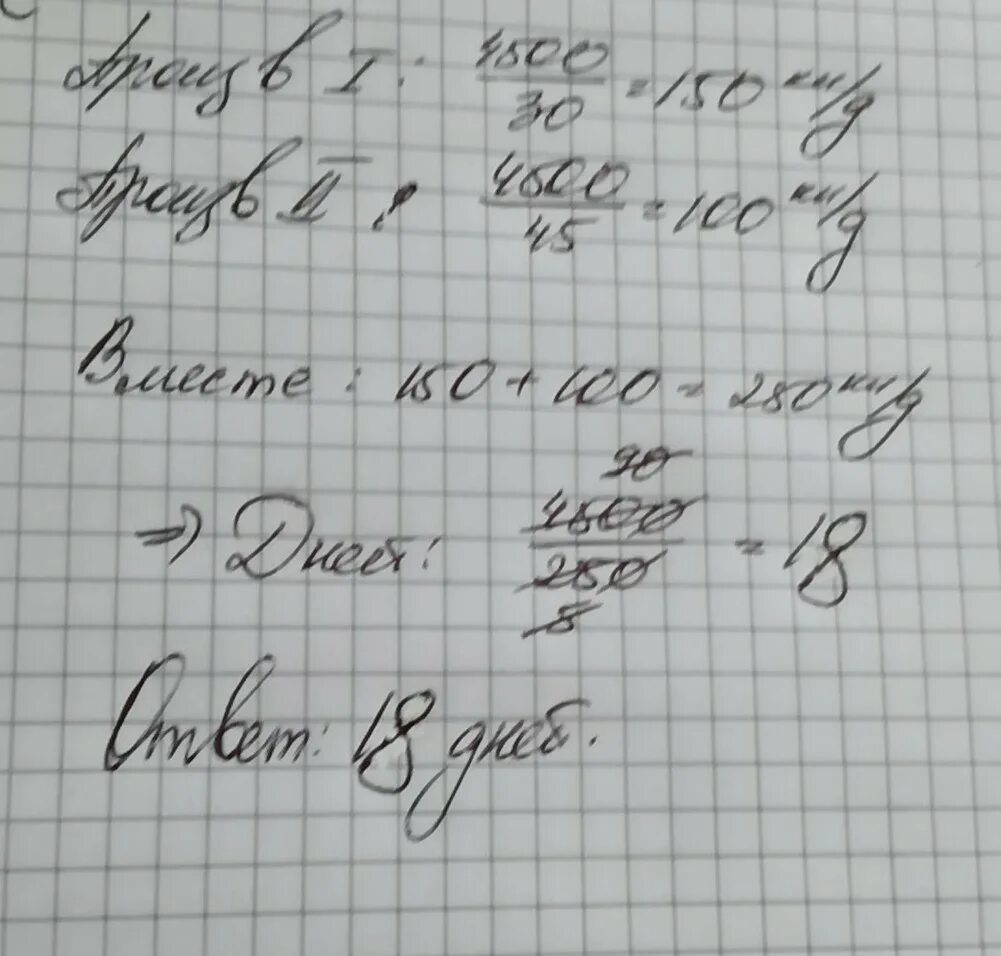 Произв I: 4500/30 = 150 кн/д
Произв II: 4500/45 = 100 кн/д
Вместе: 150 + 100 = 250 кн/д
90
=> Дней: 4500/250 = 18
5
Ответ: 18 дней.